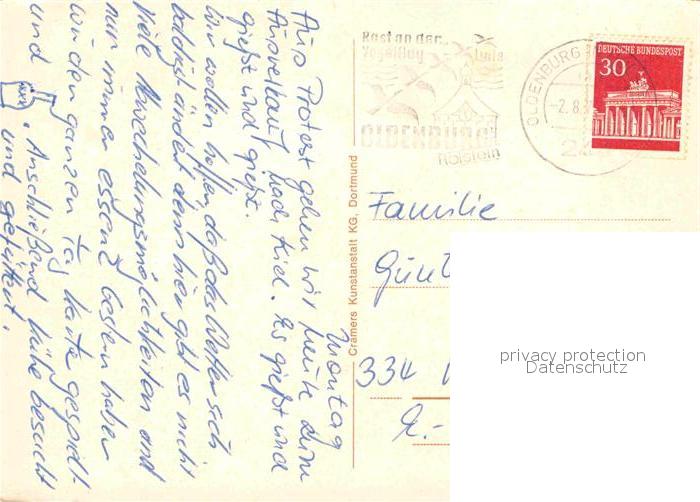 Montag
Aus Protest gehen wir heute zum
Ausverkauf nach Kiel. Es gießt und
gießt und gießt.
Wir wollen hoffen daß das Wetter sich
baldigst ändert denn hier gibt es nicht
viele Abwechslungsmöglichkeiten und
nur immer essen? Gestern haben
wir den ganzen Tag Karten gespielt
und . Anschließend Kühe besucht
und gefüttert.
Rast an der
Vogelfluglinie
OLDENBURG
Holstein
OLDENBURG
2.8.
DEUTSCHE BUNDESPOST
30
Cramers Kunstanstalt KG, Dortmund
Familie
Gün
334
privacy protection
Datenschutz